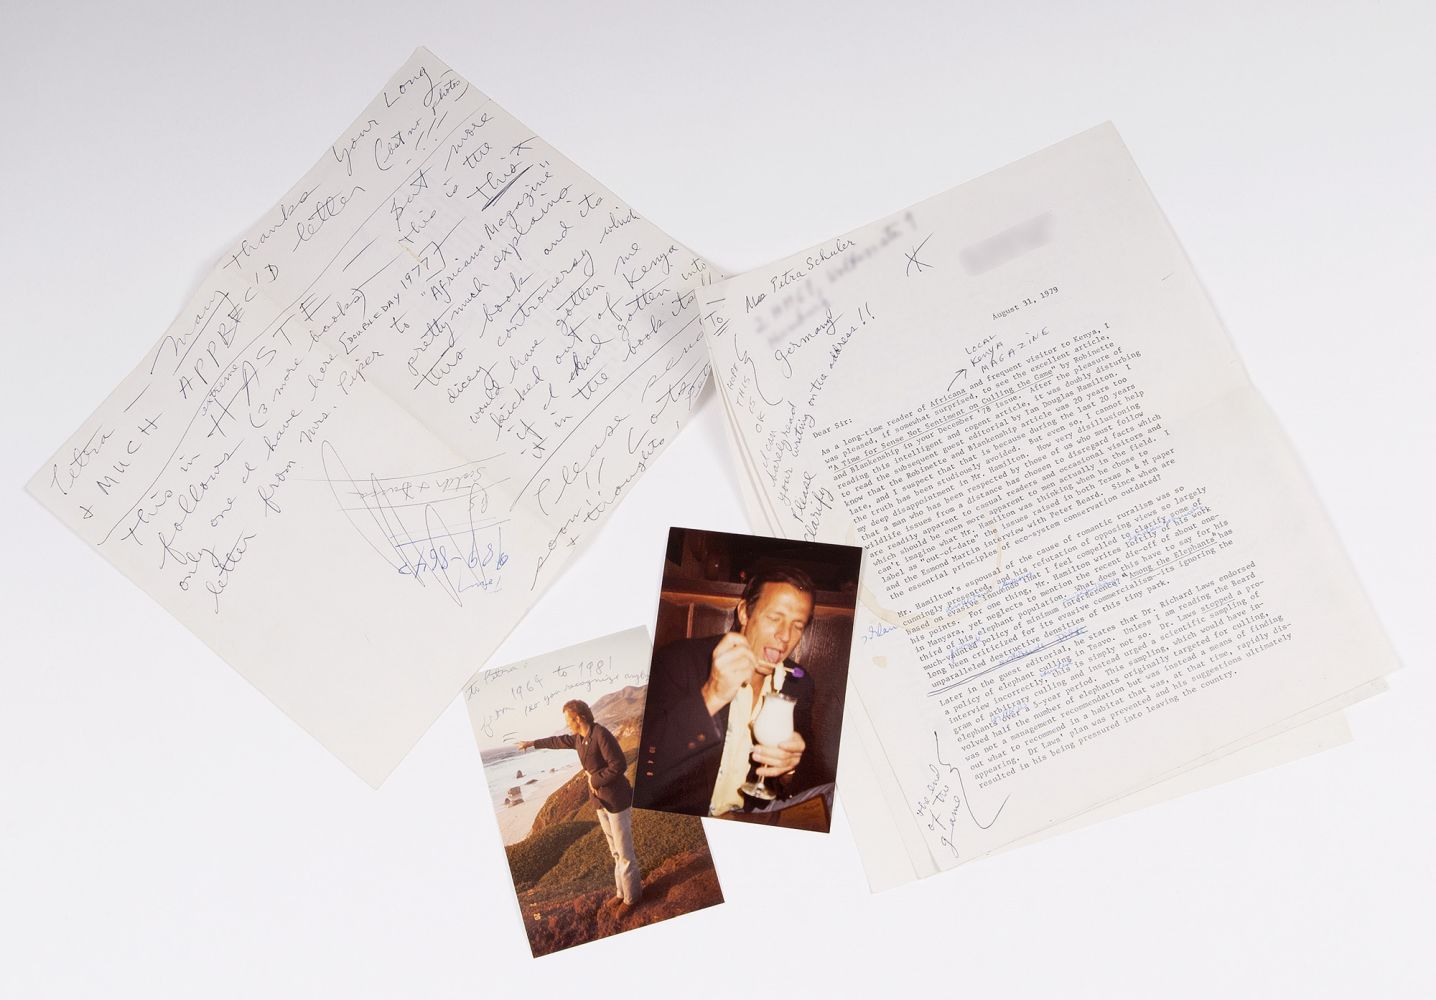 Petra — Many thanks your Long
+ MUCH APPREC'D letter (but no photos)
!!!
This in extreme HASTE — But more
follows (3 more books)
This is the
only one I have here [DOUBLEDAY 1977]
This*
letter from Mrs. Piper
to "Africana Magazine"
pretty much explains
this book and its
dicey controversy which
would have gotten me
kicked out of Kenya
if I'd had gotten into
it in the book itself!!
Please send
soon
+ thoughts!
989-8643
To:
Miss Petra Schuler
Germany
HOPE THIS IS OK
(I can barely read
your writing on the address!!
Please
clarify
August 31, 1979
LOCAL
KENYA
MAGAZINE
Dear Sir:
As a long-time reader of Africana and frequent visitor to Kenya, I
was pleased, if somewhat surprised, to see the excellent article,
"A Time for Sense Not Sentiment on Culling the Game" by Robinette
and Blankenship in your December '78 issue. After the pleasure of
reading this intelligent and cogent article, it was doubly disturbing
to read the subsequent guest editorial by Ian Douglas Hamilton. I
know that the Robinette and Blankenship article was 20 years too
late, and I suspect that that is because during the last 20 years
the truth has been studiously avoided. But even so, I cannot help
my deep disappointment in Mr. Hamilton. How very disillusioning
that a man who has been respected by those of us who must follow
wildlife issues from a distance has chosen to disregard facts which
are readily apparent to casual readers and occasional visitors and
which should be even more apparent to one actually in the field. I
can't imagine what Mr. Hamilton was thinking when he chose to
label as "out-of-date" the issues raised in both Texas A & M paper
and the Esmond Martin interview with Peter Beard. Since when are
the essential principles of eco-system conservation outdated?
Mr. Hamilton's espousal of the cause of romantic ruralism was so
cunningly presented, and his refutation of opposing views so largely
based on evasive innuendo that I feel compelled to clarify some of
his points. For one thing, Mr. Hamilton writes softly of his work
in Manyara, yet neglects to mention the recent die-off of about one-
third of his elephant population. What does this have to say for his
much-vaunted policy of minimum interference? "Among the Elephants" has
long been criticized for its evasive commercialism—its ignoring the
unparalleled destructive densities of this tiny park.
Later in the guest editorial, he states that Dr. Richard Laws endorsed
a policy of elephant culling in Tsavo. Unless I am reading the Beard
interview incorrectly, this is simply not so. Dr. Laws stopped a pro-
gram of arbitrary culling and instead urged a scientific sampling of
elephants over a 5-year period. This sampling, which would have in-
volved half the number of elephants originally targeted for culling,
was not a management recommendation but was instead a means of finding
out what to recommend in a habitat that was, at that time, rapidly dis-
appearing. Dr Laws' plan was prevented and his suggestions ultimately
resulted in his being pressured into leaving the country.
the end
of the
game
to Petra:
from 1964 to 1981